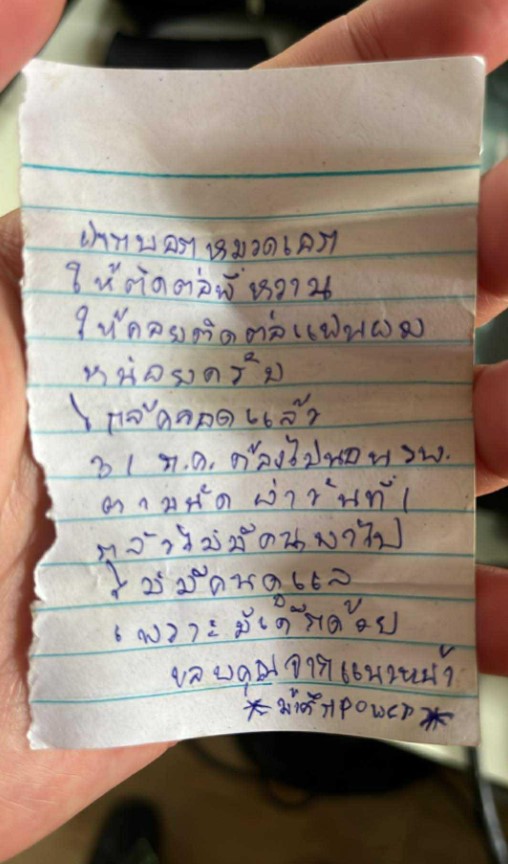 ฝากบอกหมวดเอก
ให้ติดต่อพี่หวาน
ให้คอยติดต่อแฟนผม
หน่อยครับ
ใกล้คลอดแล้ว
31 ต.ค. ต้องไปนอน รพ.
ตามนัด ผ่าวันที่ 1
กลัวไม่มีคนพาไป
ไม่มีคนดูแล
เพราะมีเด็กด้วย
ขอบคุณจาก
POWER